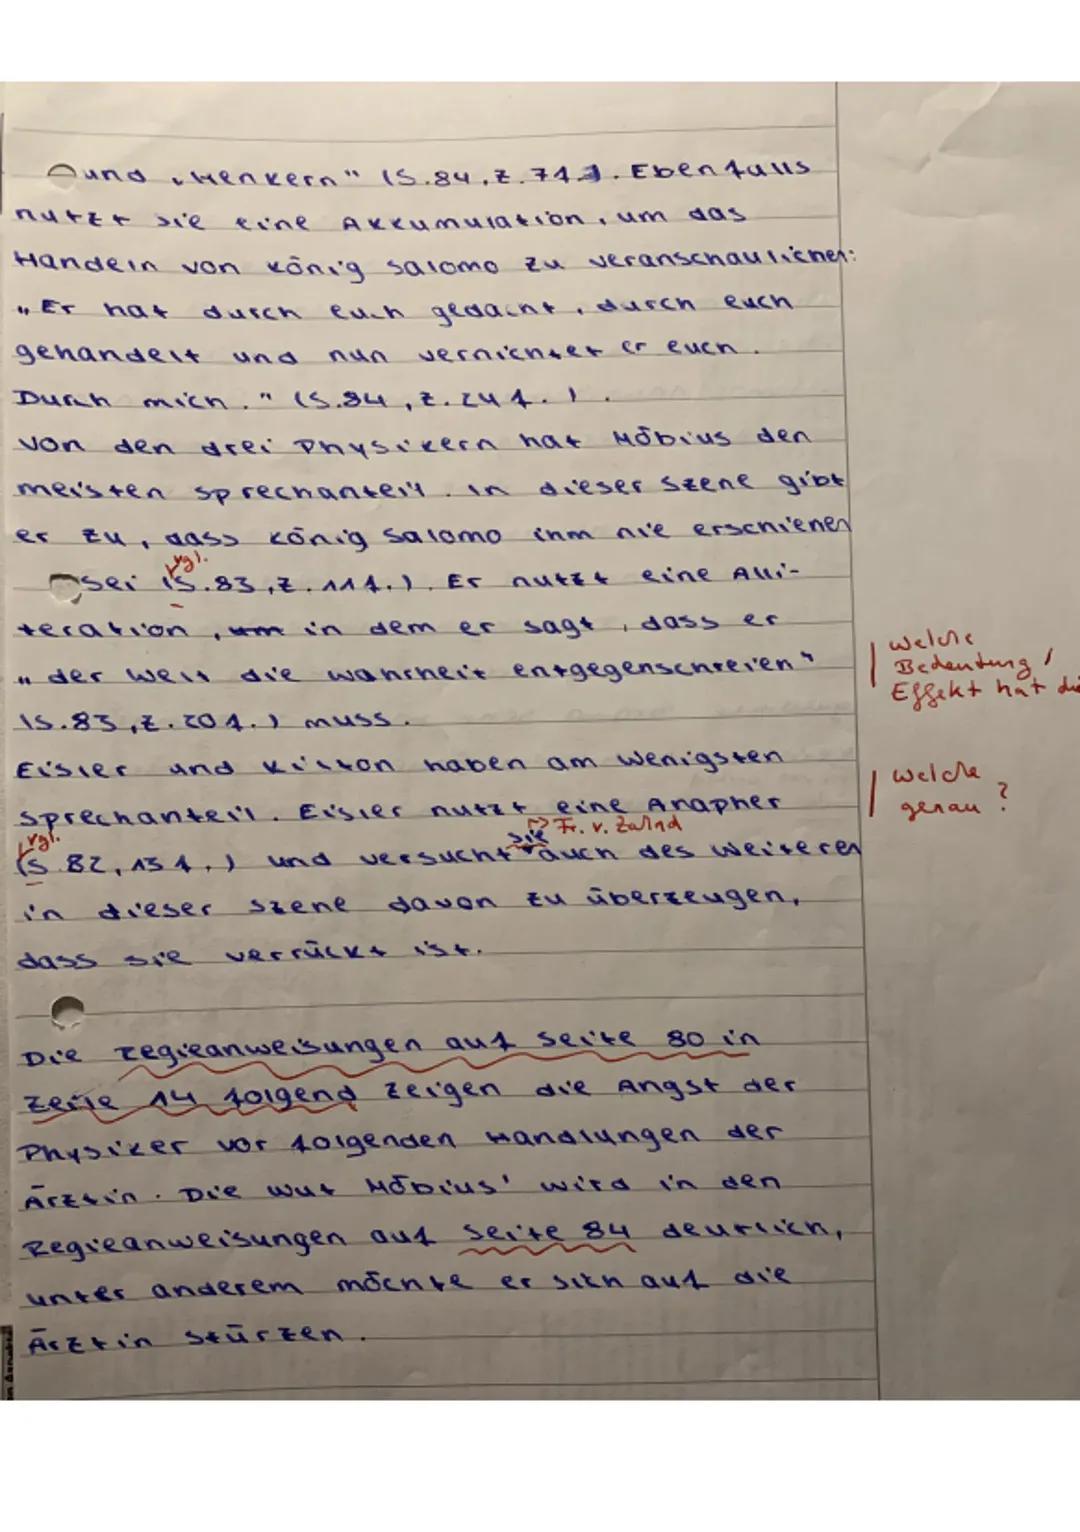 und „Henkern" (S.84, Z.7f.). Ebenfalls
nutzt sie eine Akkumulation, um das
Handeln von König Salomo zu veranschaulichen:
„Er hat durch euch gedacht, durch euch
gehandelt und nun vernichtet er euch.
Durch mich." (S.84, Z.24f.).
Von den drei Physikern hat Möbius den
meisten Sprechanteil. In dieser Szene gibt
er zu, dass König Salomo ihm nie erschienen
vgl.
sei (S.83, Z.11f.). Er nutzt eine Alli-
teration, um in dem er sagt, dass er
„der Welt die Wahrheit entgegenschreien"
(S.83, Z.20f.) muss.
Eisler und Kilton haben am wenigsten
Sprechanteil. Eisler nutzt eine Anapher
vgl. sie → Fr. v. Zahnd
(S.82, 13f.) und versucht auch des Weiteren
in dieser Szene davon zu überzeugen,
dass sie verrückt ist.
Die Regieanweisungen auf Seite 80 in
Zeile 14 folgend zeigen die Angst der
Physiker vor folgenden Handlungen der
Ärztin. Die Wut Möbius' wird in den
Regieanweisungen auf Seite 84 deutlich,
unter anderem möchte er sich auf die
Ärztin stürzen.
Welche
Bedeutung /
Effekt hat die
Welche
genau?